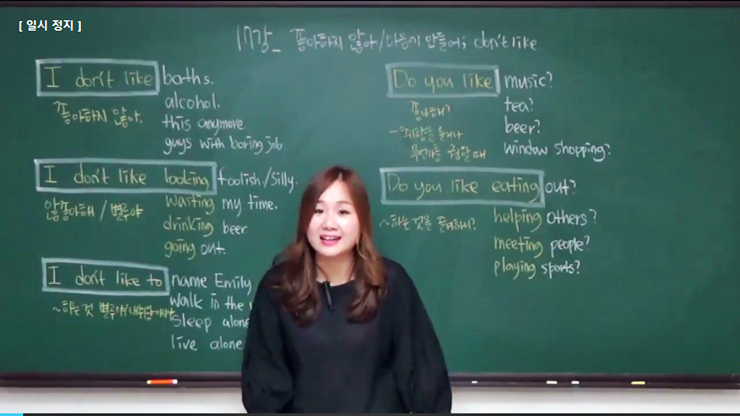 [ 일시 정지 ]
17강_ 좋아하지 않아/마음에 안들어; don't like
I don't like baths.
좋아하지 않아.
alcohol.
this anymore.
guys with boring job
I don't like looking foolish/silly.
안좋아해 / 별루야
wasting my time.
drinking beer
going out.
I don't like to name Emily
~하는 것 별루야
walk in the
sleep alone
live alone
Do you like music?
좋아해?
tea?
beer?
window shopping?
Do you like eating out?
~하는 것을
helping others?
meeting people?
playing sports?